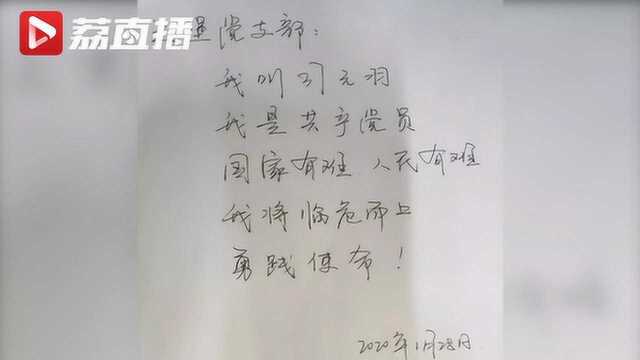 荔直播
党支部：
我叫元羽
我是共产党员
国家有难 人民有难
我将临危而上
勇践使命！
2020年1月28日